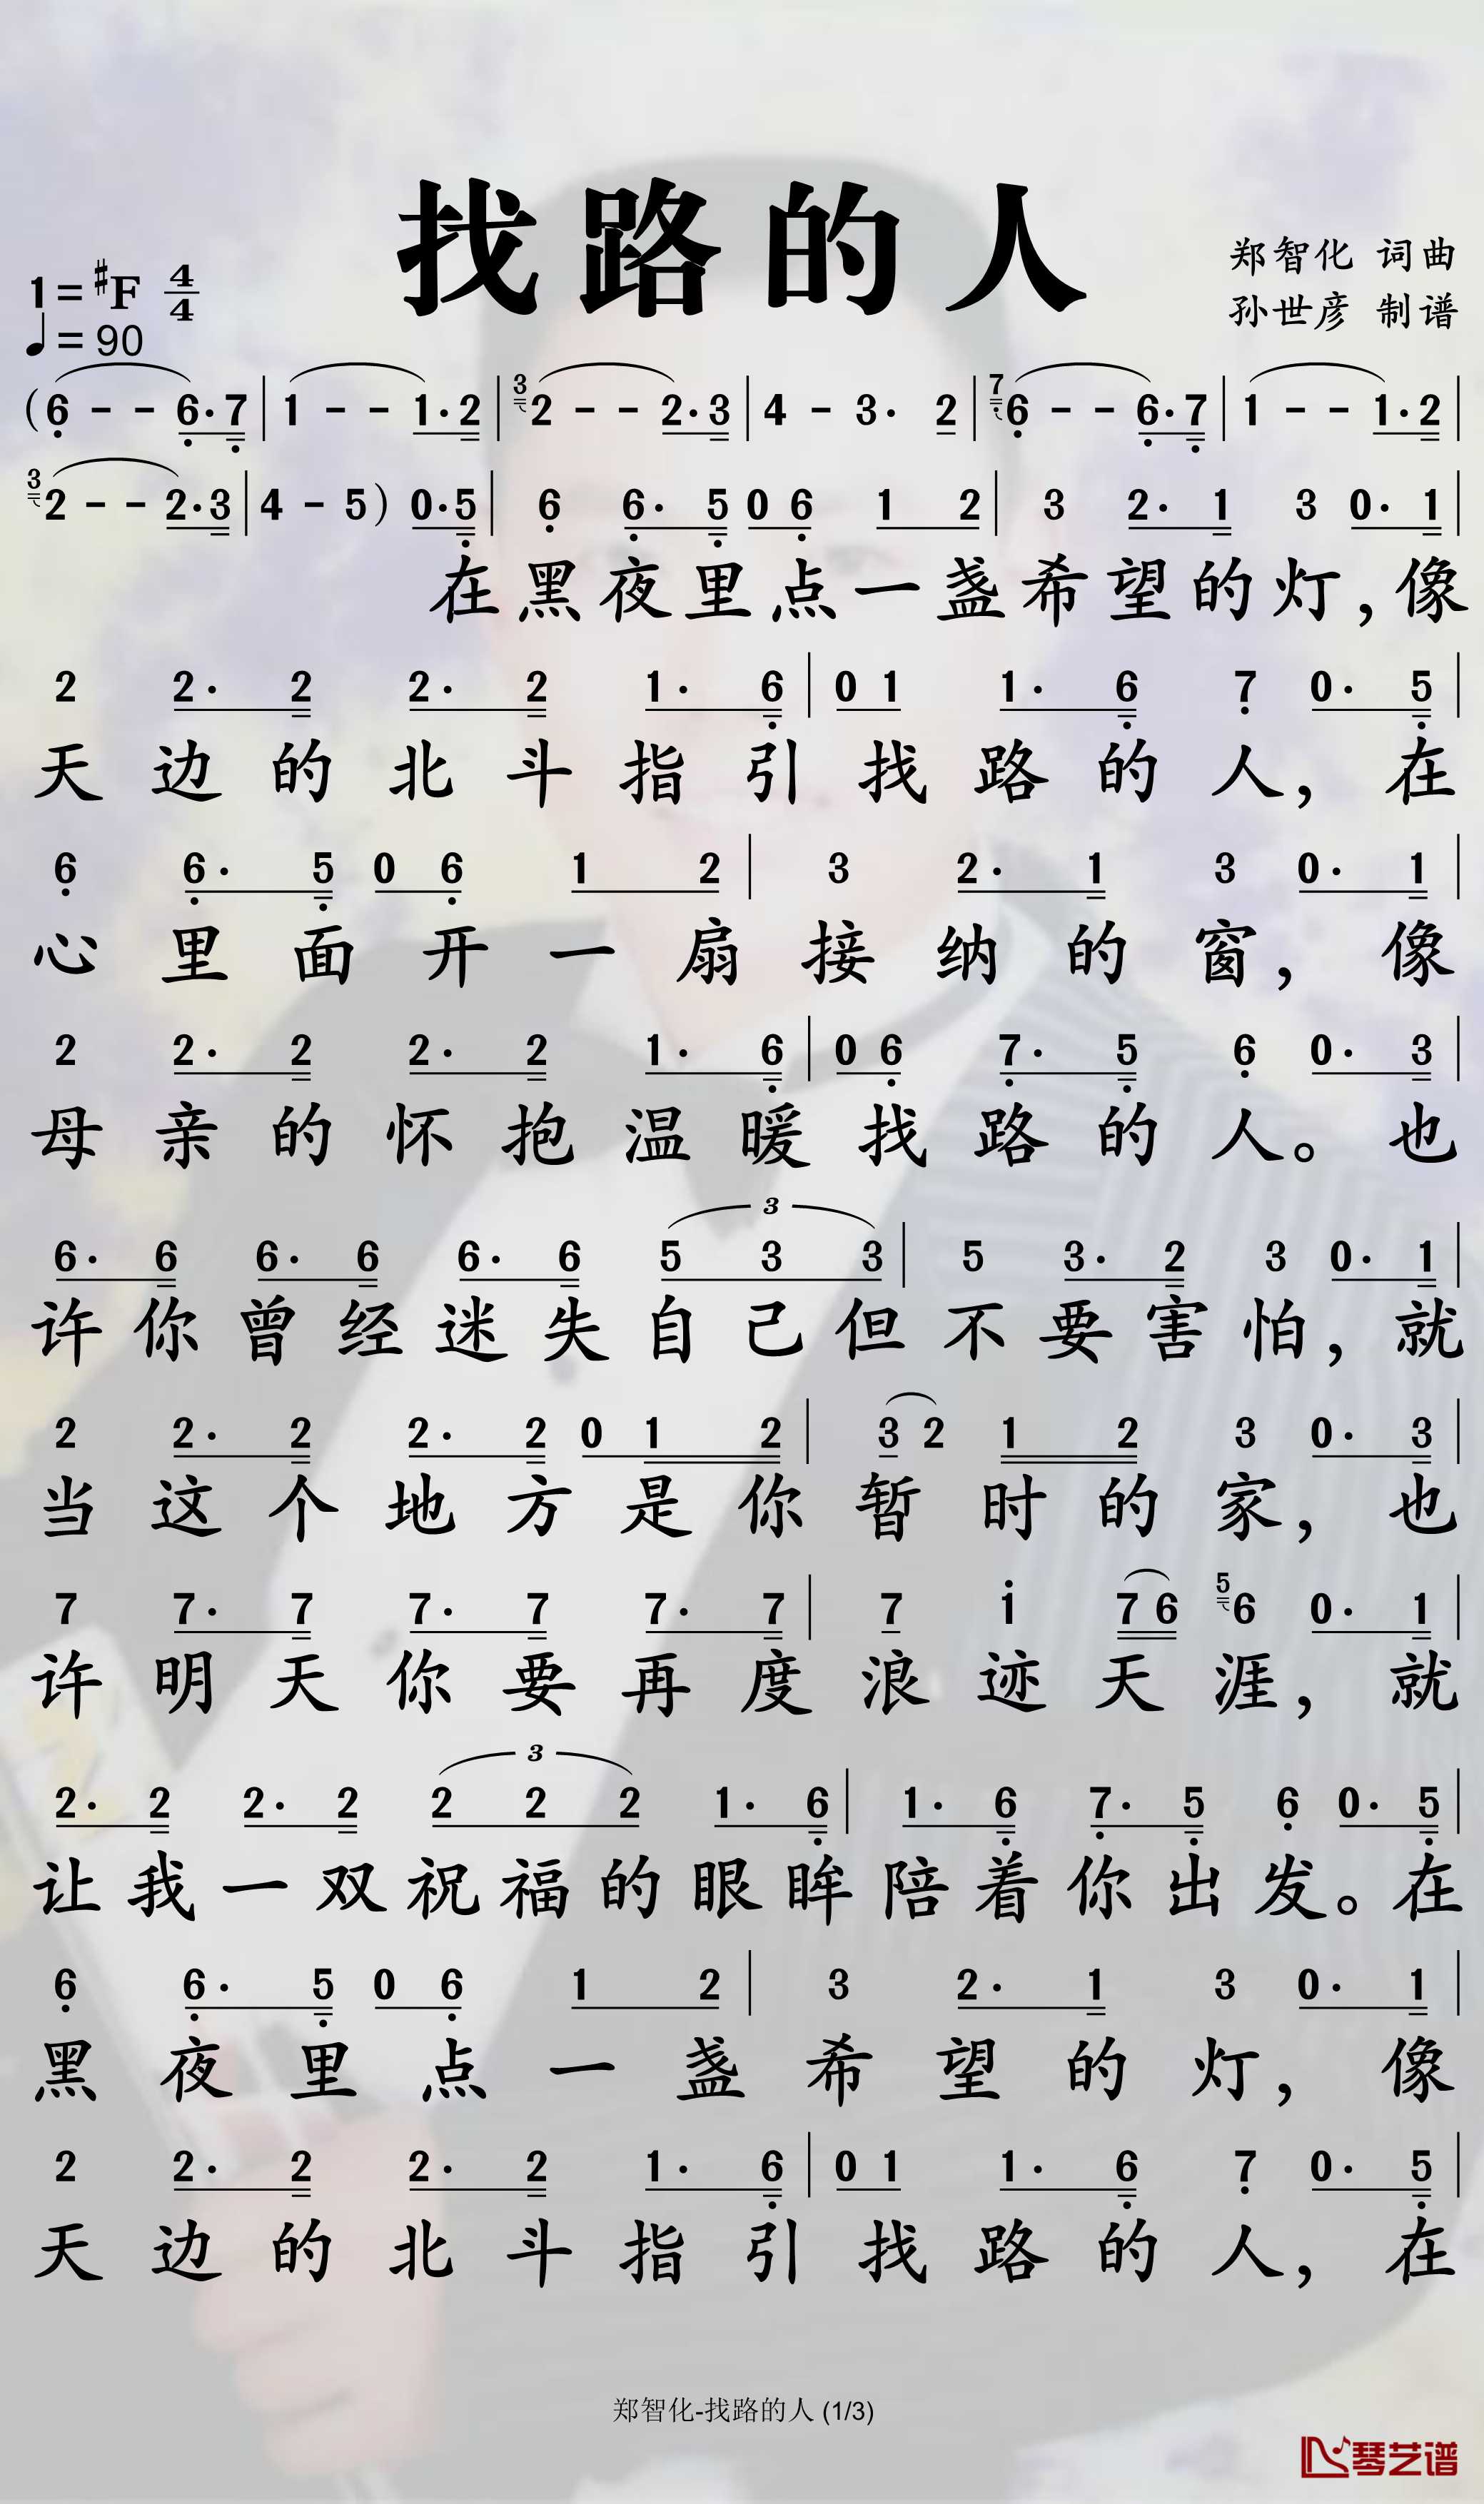 找路的人
郑智化 词曲
孙世彦 制谱
1=#F 4/4
♩=90
(6 - - 6·7 | 1 - - 1·2 | 3 2 - - 2·3 | 4 - 3· 2 | 7 6 - - 6·7 | 1 - - 1·2 |
3 2 - - 2·3 | 4 - 5) 0·5 | 6 6· 5 0 6 1 2 | 3 2· 1 3 0· 1 |
在黑夜里点一盏希望的灯,像
2 2· 2 2· 2 1· 6 | 0 1 1· 6 7 0· 5 |
天边的北斗指引找路的人,在
6 6· 5 0 6 1 2 | 3 2· 1 3 0· 1 |
心里面开一扇接纳的窗,像
2 2· 2 2· 2 1· 6 | 0 6 7· 5 6 0· 3 |
母亲的怀抱温暖找路的人。也
3
6· 6 6· 6 6· 6 5 3 3 | 5 3· 2 3 0· 1 |
许你曾经迷失自己但不要害怕,就
2 2· 2 2· 2 0 1 2 | 3 2 1 2 3 0· 3 |
当这个地方是你暂时的家,也
7 7· 7 7· 7 7· 7 | 7 i 7 6 5 6 0· 1 |
许明天你要再度浪迹天涯,就
3
2· 2 2· 2 2 2 2 1· 6 | 1· 6 7· 5 6 0· 5 |
让我一双祝福的眼眸陪着你出发。在
6 6· 5 0 6 1 2 | 3 2· 1 3 0· 1 |
黑夜里点一盏希望的灯,像
2 2· 2 2· 2 1· 6 | 0 1 1· 6 7 0· 5 |
天边的北斗指引找路的人,在
郑智化-找路的人 (1/3)
琴艺谱